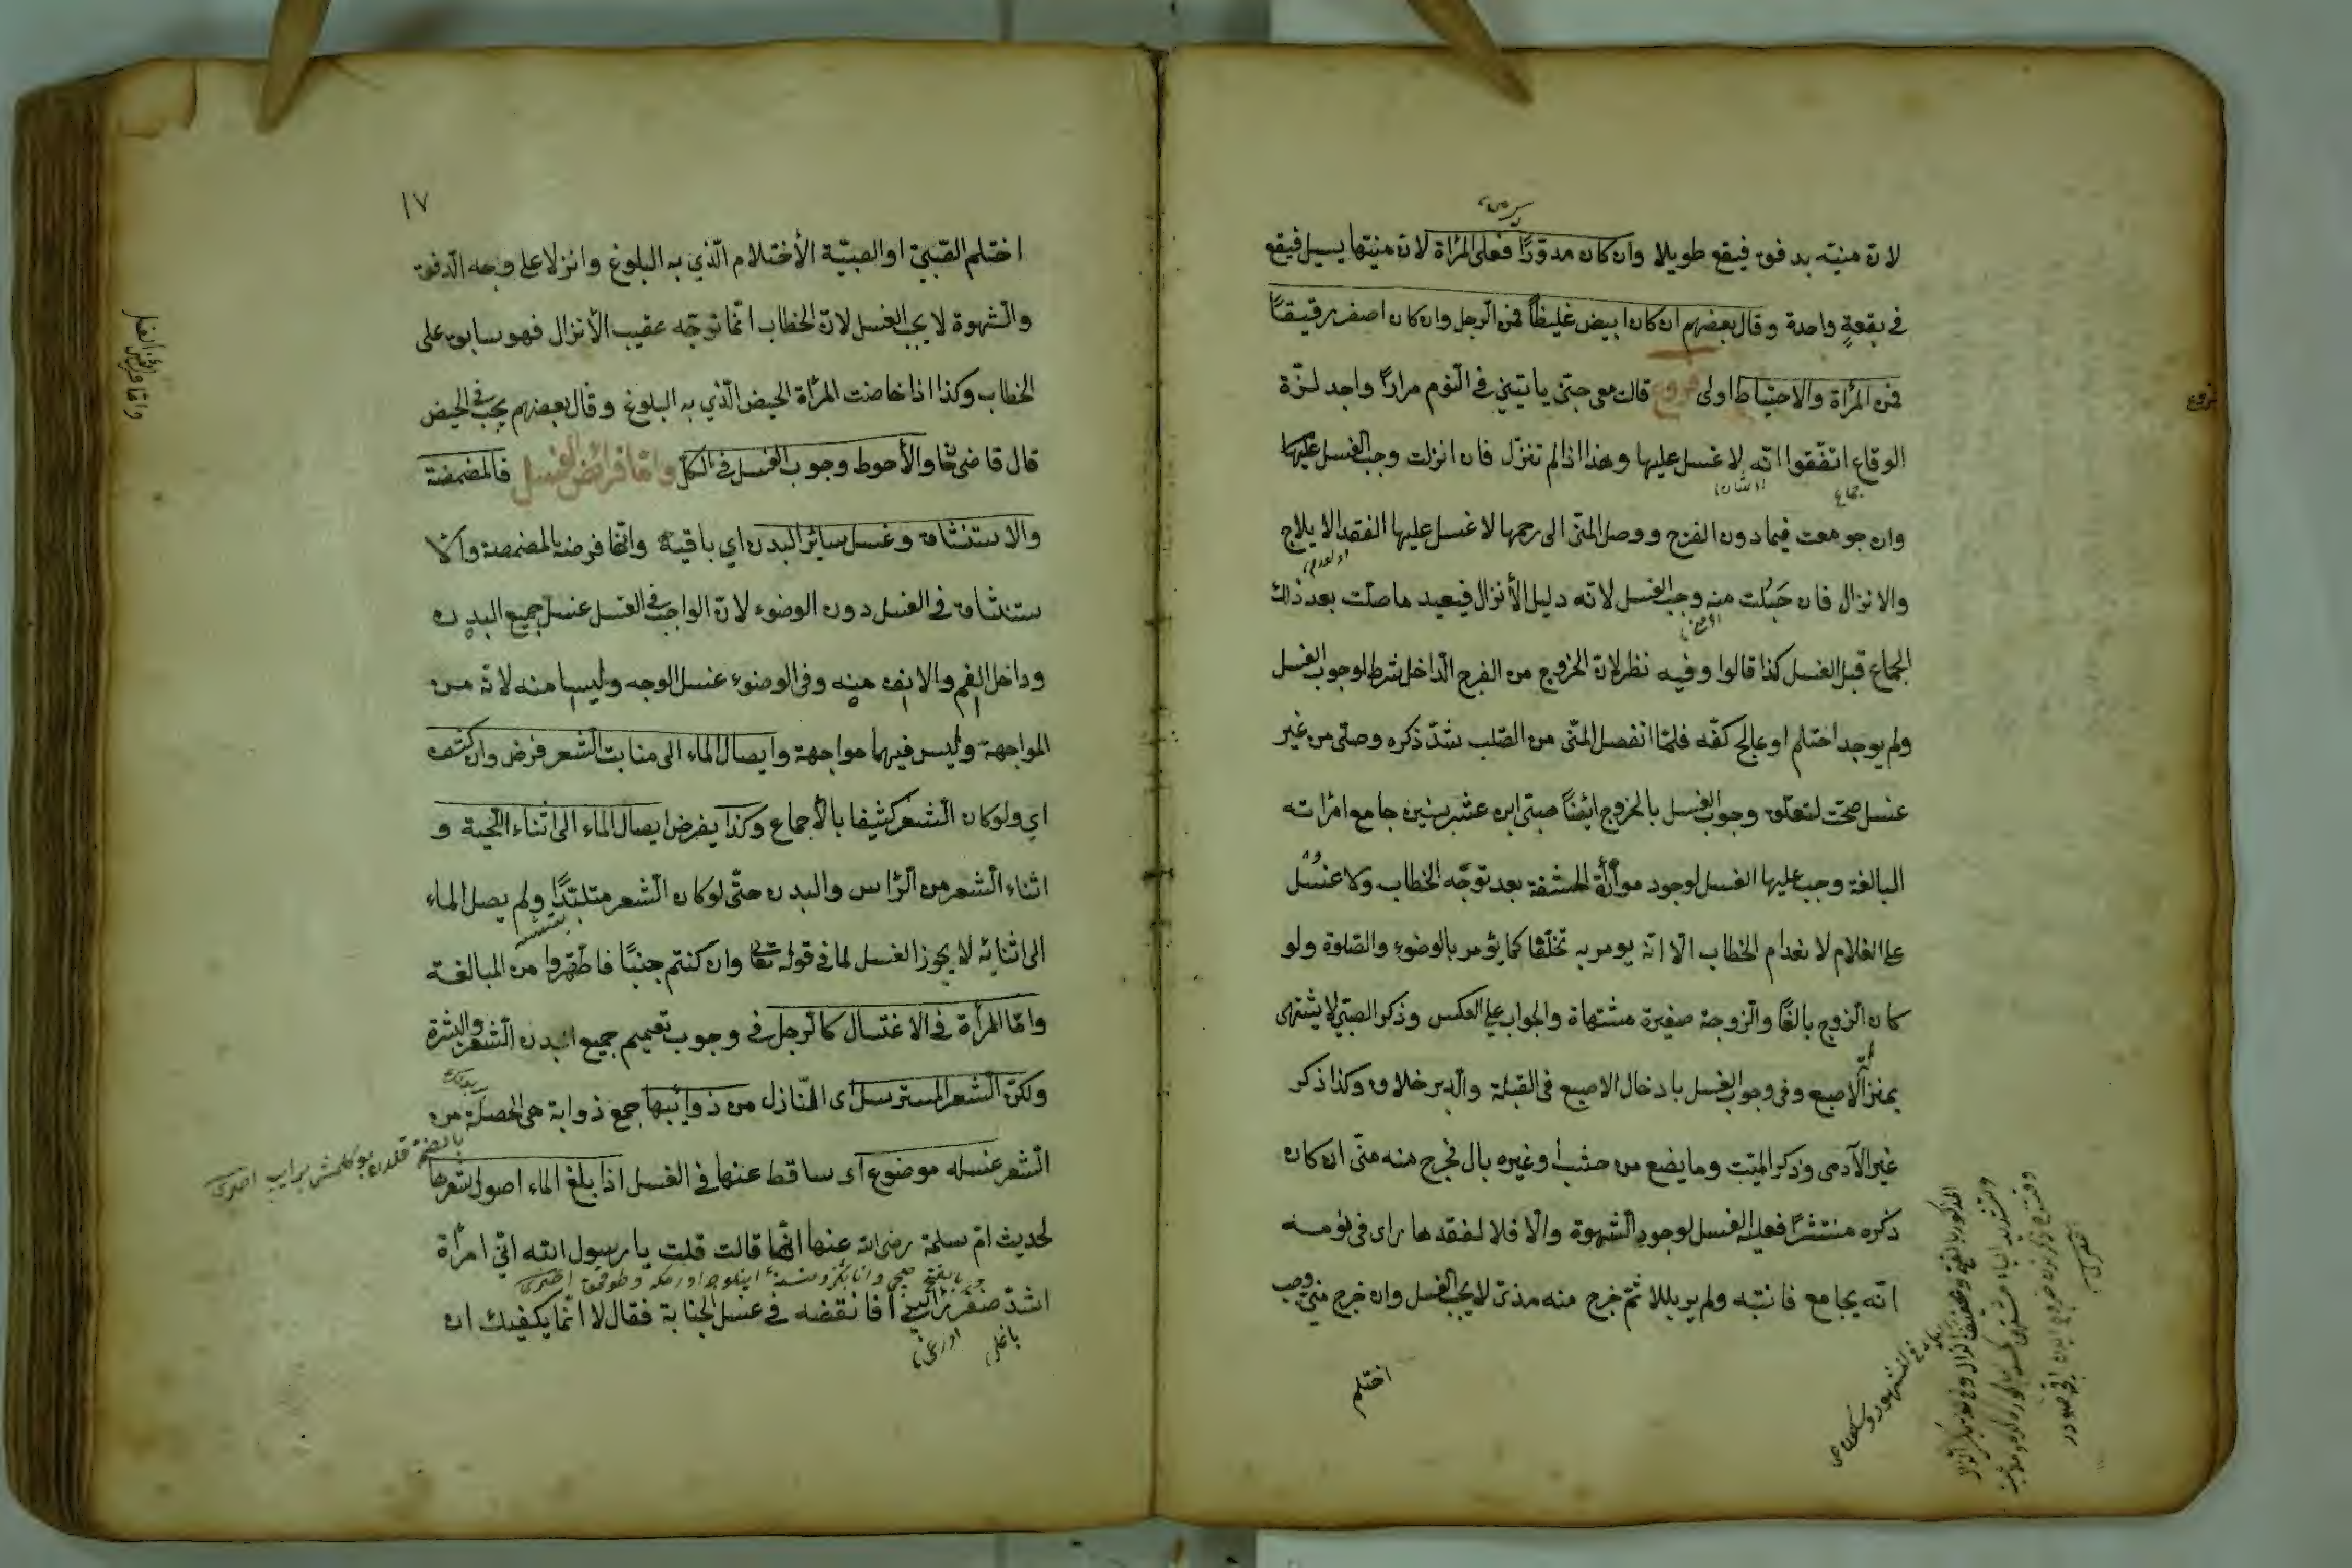 لان منيّه بدفق فيقع طويلا وان كان مدوّرًا فعلى المرأة لان منيّها يسيل فيقع
في بقعةٍ واحدة وقال بعضهم ان كان ابيض غليظًا فمن الرجل وان كان اصفر رقيقًا
فمن المرأة والاحتياط اولى فروع قالت معى جنّى ياتينى في النّوم مرارًا واجد لذّة
الوقاع اتّفقوا انّه لا غسل عليها وهذا اذا لم تنزل فان انزلت وجب الغسل عليها
جماع
وان جومعت فيما دون الفرج ووصل المنّى الى رحمها لا غسل عليها لفقد الايلاج
والانزال فان حَبُلت منه وجب الغسل لانّه دليل الأنزال فيعيد ما صلّت بعد ذلك
الجماع قبل الغسل كذا قالوا وفيه نظر لان الخروج من الفرج الدّاخل شرط لوجوب الغسل
ولم يوجد احتلم او عالج كفّه فلمّا انفصل المنّى من الصّلب شدّ ذكره وصلّى من غير
غسل صحّت لتعلّق وجوب الغسل بالخروج ايضًا صبّى ابن عشر سنين جامع امرأته
البالغة وجب عليها الغسل لوجود مواراة الحشفة بعد توجّه الخطاب ولا غسل
على الغلام لانعدام الخطاب الّا انّه يومر به تخلّقا كما يؤمر بالوضوء والصّلوة ولو
كان الزوج بالغًا والزوجة صغيرة مشتهاة والجواب على العكس وذكر الصبّى لا يشتهى
بمنزلة الاصبع وفى وجوب الغسل بادخال الاصبع فى القبلة والدّبر خلاف وكذا ذكر
غير الآدمى وذكر الميّت وما يضع من خشب وغيره بال فخرج منه منّى ان كان
ذكره منتشرًا فعليه الغسل لوجود الشّهوة والّا فلا لفقدها راى فى نومه
انّه يجامع فانتبه ولم ير بللا ثمّ خرج منه مذىّ لا يجب الغسل وان خرج منىّ وجب
احتلم
فروع
١٧
احتلم الصّبىّ او الصبيّة الأحتلام الّذي به البلوغ وانزلا على وجه الدّفق
والشّهوة لا يجب الغسل لانّ الخطاب انّما توجّه عقيب الأنزال فهو سابق على
الخطاب وكذا اذا حاضت المرأة الحيض الّذي به البلوغ وقال بعضهم يجب فى الحيض
قال قاضى خان والأحوط وجوب الغسل فى الكلّ وامّا فرائض الغسل فالمضمضة
والاستنشاق وغسل سائر البدن اي باقيه وانّما فرضت المضمضة والا
ستنشاق في الغسل دون الوضوء لانّ الواجب فى الغسل غسل جميع البدن
وداخل الفم والانف منه وفى الوضوء غسل الوجه وليسا منه لانّه من
المواجهة وليس فيهما مواجهة وايصال الماء الى منابت الشّعر فرض وان كثف
اي ولو كان الشّعر كثيفا بالأجماع وكذا يفرض ايصال الماء الى اثناء اللّحية و
اثناء الشّعر من الرّاس والبدن حتّى لو كان الشّعر متلبّدًا ولم يصل الماء
الى اثنائه لا يجوز الغسل لما فى قوله تعالى وان كنتم جنبًا فاطّهّروا من المبالغة
وامّا المرأة في الاغتسال كالرّجل في وجوب تعميم جميع البدن الشّعر والبشرة
ولكنّ الشّعر المسترسل اى النّازل من ذوائبها جمع ذوابة هى الخصلة من
الشّعر غسله موضوع اى ساقط عنها في الغسل اذا بلغ الماء اصول شعرها
لحديث امّ سلمة رضى الله عنها انّها قالت قلت يا رسول الله انّي امرأة
اشدّ ضفر رأسى أفانقضه في غسل الجنابة فقال لا انّما يكفيك ان
وامّا فرائض الغسل